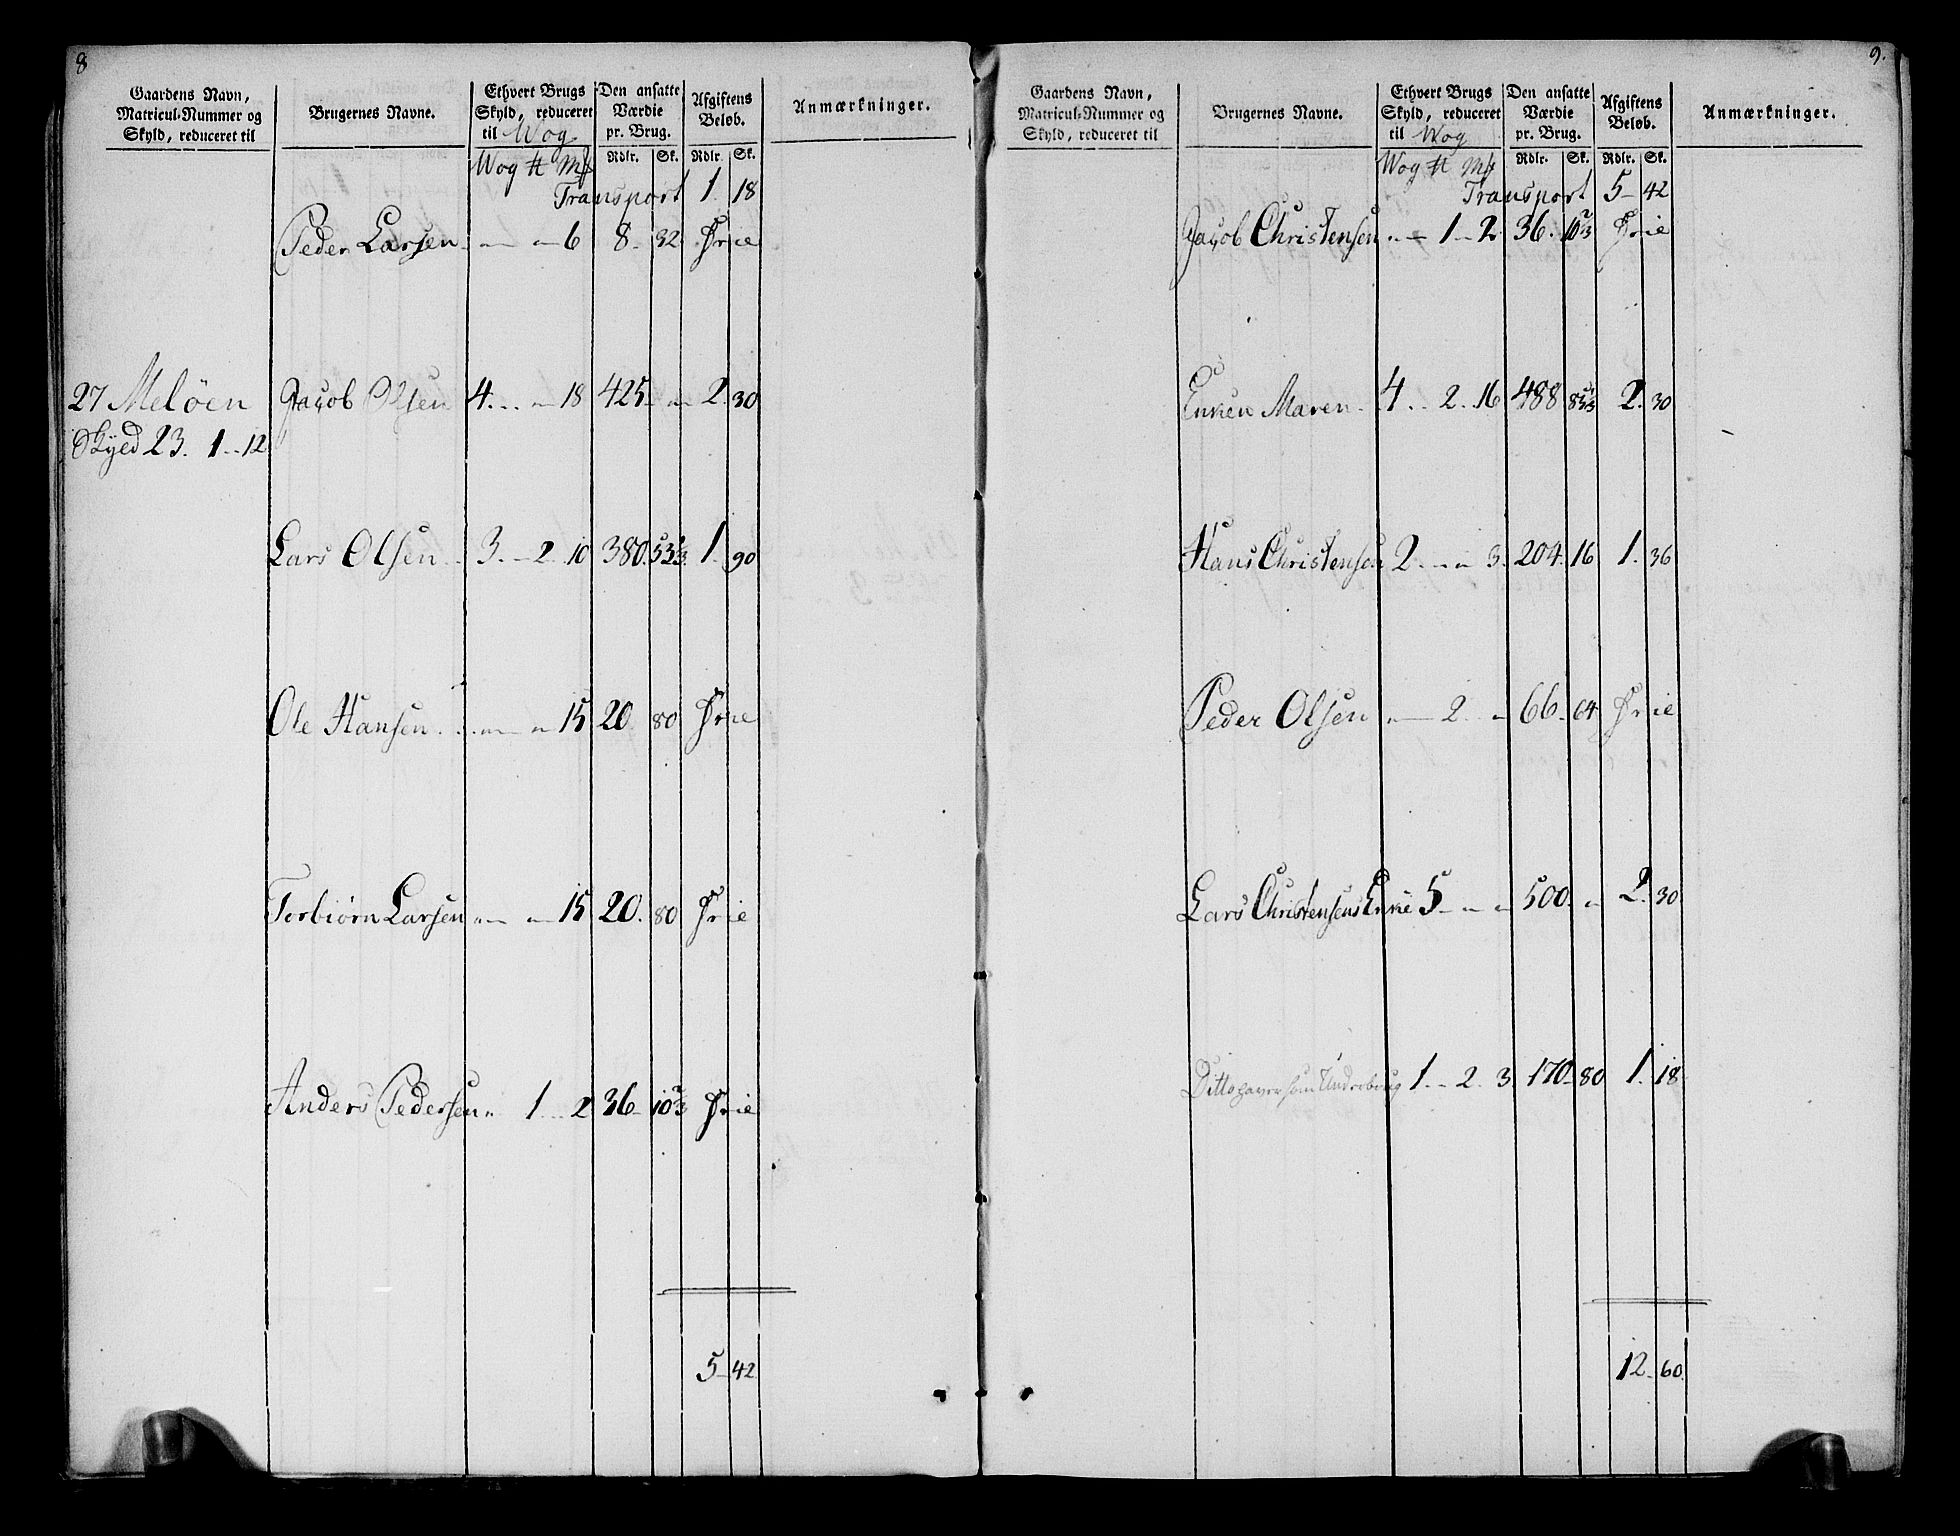 8
Gaardens Navn, Matricul-Nummer og Skyld, reduceret til
Brugernes Navne.
Ethvert Brugs Skyld, reduceret til Wog
Den ansatte Værdie pr. Brug.
Afgiftens Beløb.
Anmærkninger.
Wog ℔ Mk Rdlr. Sk. Rdlr. Sk.
Transport 1. 18
Peder Larsen - - 6 8. 32 Frie
27 Meløen Jacob Olsen 4. - 18 425 - 2. 30
Skyld 23. 1 - 12
Lars Olsen 3. - 2. 10 380. 53⅓ 1. 90
Ole Hansen - - 15 20. 80 Frie
Torbiørn Larsen - - 15 20. 80 Frie
Anders Pedersen - 1 - 2 36 - 10⅔ Frie
5 - 42
9.
Gaardens Navn, Matricul-Nummer og Skyld, reduceret til
Brugernes Navne.
Ethvert Brugs Skyld, reduceret til Wog
Den ansatte Værdie pr. Brug.
Afgiftens Beløb.
Anmærkninger.
Wog ℔ Mk Rdlr. Sk. Rdlr. Sk.
Transport 5 - 42
Jacob Christensen - 1 - 2 36. 10⅔ Frie
Enken Maren 4 - 2. 16 488 85⅓ 2. 30
Hans Christensen 2. - 3. 204. 16 1. 36
Peder Olsen - 2. - 66. 64 Frie
Lars Christensens Enke 5 - - 500. - 2. 30
Ditto haver som Underbrug 1 - 2. 3. 170 - 80 1. 18
12 - 60.